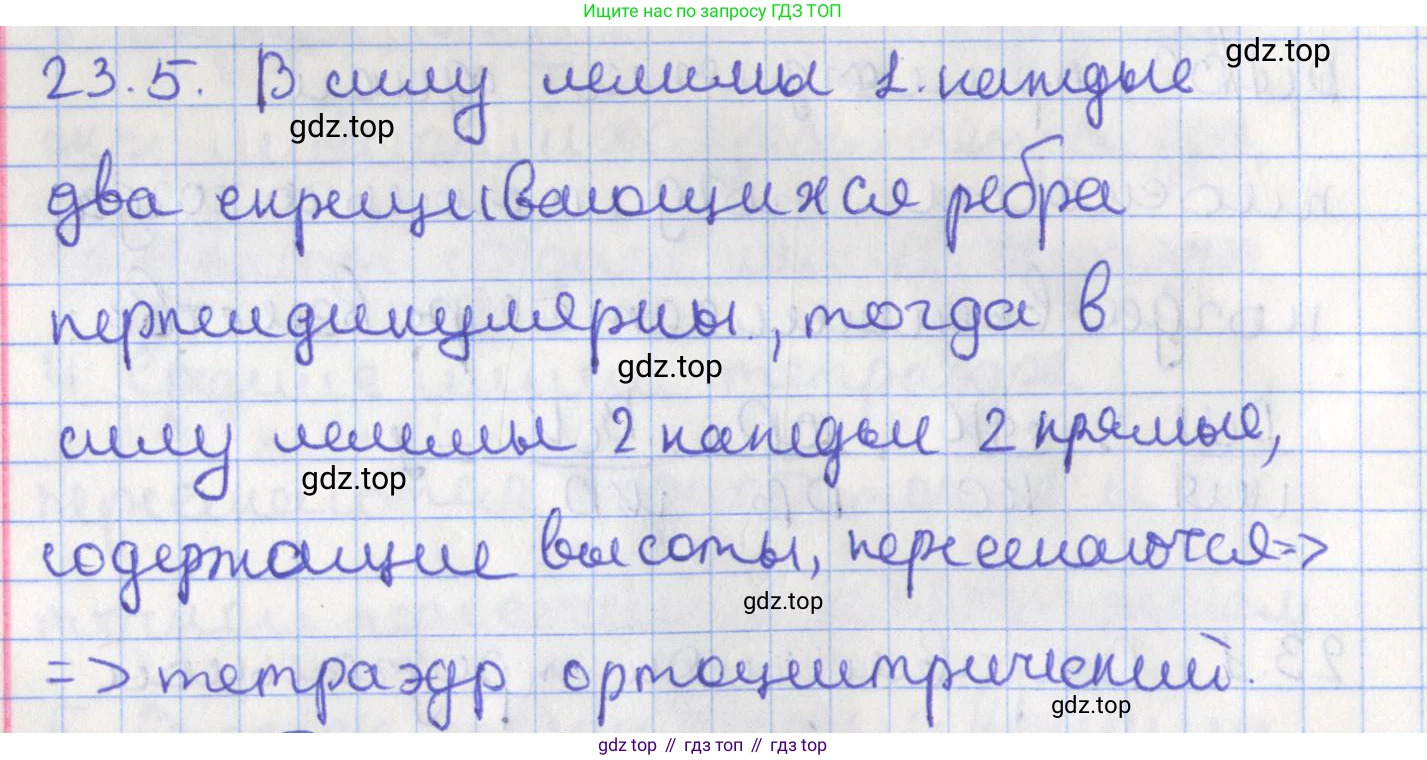 Ищите нас по запросу ГДЗ ТОП
gdz.top
23.5. В силу леммы 1. каждые
gdz.top
два скрещивающихся ребра
перпендикулярны, тогда в
gdz.top
силу леммы 2 каждые 2 прямые,
gdz.top
содержащие высоты, пересекаются=>
gdz.top
=> тетраэдр ортоцентрический.
gdz.top
gdz top // гдз топ // gdz top